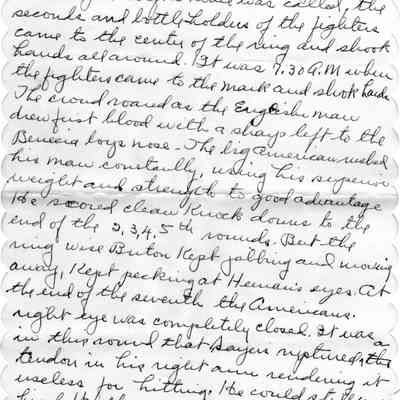 was called, the
seconds and bottle holders of the fighters
came to the center of the ring and shook
hands all around. It was 7.30 A.M when
the fighters came to the mark and shook hands
The crowd roared as the Englishman
drew first blood with a sharp left to the
Benecia boys nose - The big american rushed
his man constantly, using his superior
weight and strength to good advantage
He scored clean Knock downs to the
end of the 2, 3, 4, 5th rounds. But the
ring wise Briton Kept jabbing and moving
away, Kept pecking at Henan's eyes. At
the end of the seventh the Americans.
right eye was completely closed. It was
in this round that Sayers ruptured, the
tendon in his right arm rendering it
useless for hitting. He could still